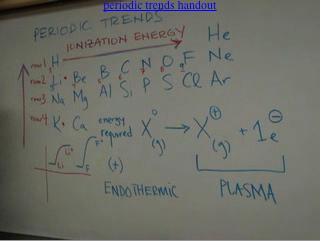 periodic trends handout
PERIODIC TRENDS
IONIZATION ENERGY
He
row1 H
Ne
row2 Li Be B C N O F
row3 Na Mg Al Si P S Cl Ar
row4 K Ca
energy required X⁰(g) → X⊕(g) + 1e⊖
Li F
(+)
ENDOTHERMIC PLASMA